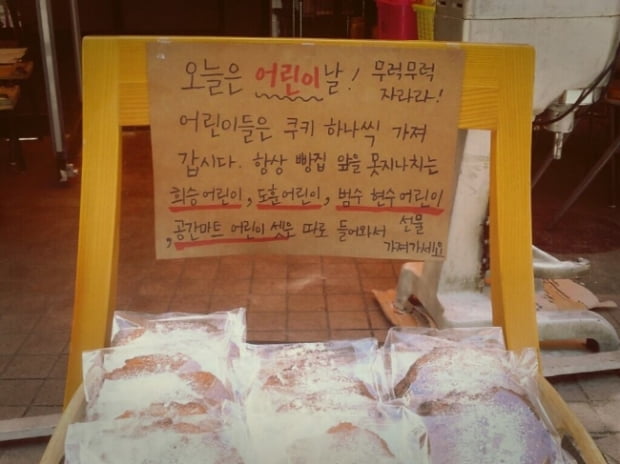 오늘은 어린이날! 무럭무럭
자라라!
어린이들은 쿠키 하나씩 가져
갑시다. 항상 빵집 앞을 못지나치는
희승어린이, 도훈어린이, 범수 현수어린이
,공간마트 어린이 셋은 따로 들어와서 선물
가져가세요